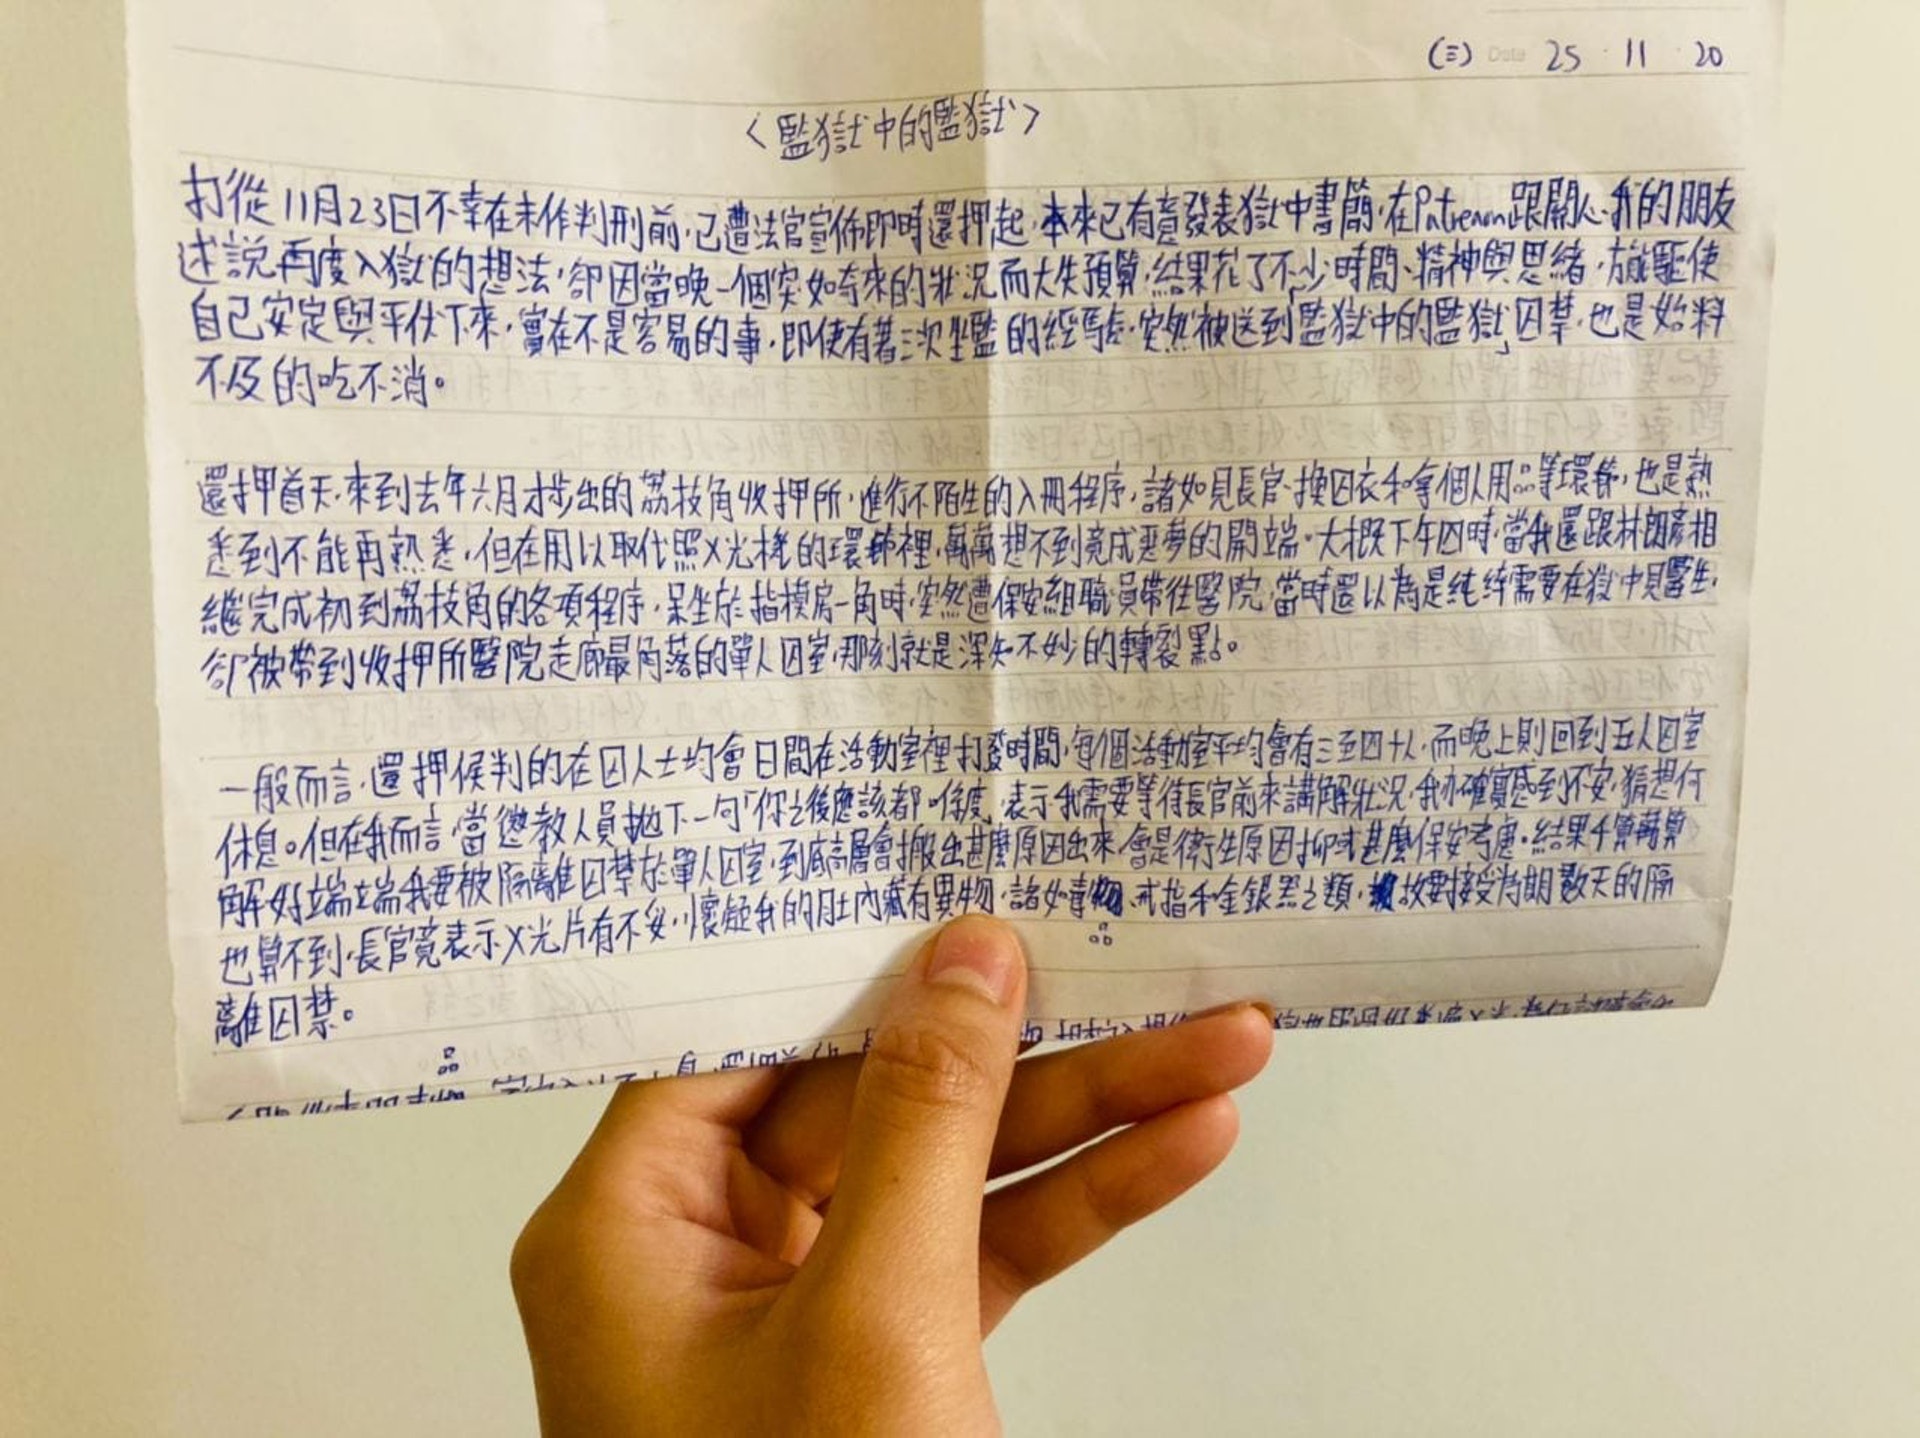 (三) Date 25 · 11 · 20
〈監獄中的監獄〉
打從11月23日不幸在未作判刑前,已遭法官宣佈即時還押起,本來已有意發表獄中書簡,在Patreon跟關心我的朋友
述說再度入獄的想法,卻因當晚一個突如奇來的狀況而大失預算,結果花了不少時間、精神與思緒,方能驅使
自己安定與平伏下來,實在不是容易的事,即使有著三次坐監的經驗,突然被送到「監獄中的監獄」囚禁,也是始料
不及的吃不消。
還押首天,來到去年六月才步出的荔枝角收押所,進行不陌生的入冊程序,諸如見長官、換囚衣和拿個人用品等環節,也是熟
悉到不能再熟悉,但在用以取代照X光機的環節裡,萬萬想不到竟成惡夢的開端。大概下午四時,當我還跟林朗彥相
繼完成初到荔枝角的各項程序,呆坐於指模房一角時,突然遭保安組職員帶往醫院,當時還以為是純綷需要在獄中見醫生,
卻被帶到收押所醫院走廊最角落的單人囚室,那刻就是深知不妙的轉裂點。
一般而言,還押候判的在囚人士均會日間在活動室裡打發時間,每個活動室平均會有三至四十人,而晚上則回到五人囚室
休息。但在我而言,當懲教人員拋下一句「你之後應該都係度」,表示我需要等待長官前來講解狀況,我亦確實感到不安,猜想何
解好端端我要被隔離囚禁於單人囚室,到底高層會搬出甚麼原因出來,會是衛生原因抑或甚麼保安考慮。結果千算萬算
也算不到,長官竟表示X光片有不妥,懷疑我的肚內藏有異物,諸如毒品、戒指和金銀器之類,故要接受為期數天的隔
離囚禁。